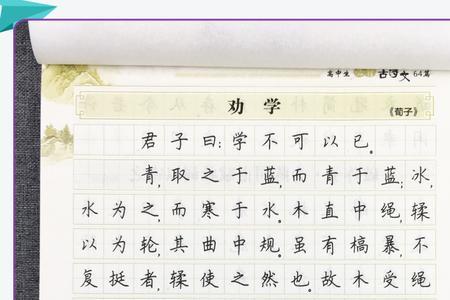 高中生 古文 64篇
劝学
《荀子》
君子曰：学不可以已。
青，取之于蓝，而青于蓝；冰，
水为之，而寒于水。木直中绳，𫐓
以为轮，其曲中规。虽有槁暴，不
复挺者，𫐓使之然也。故木受绳